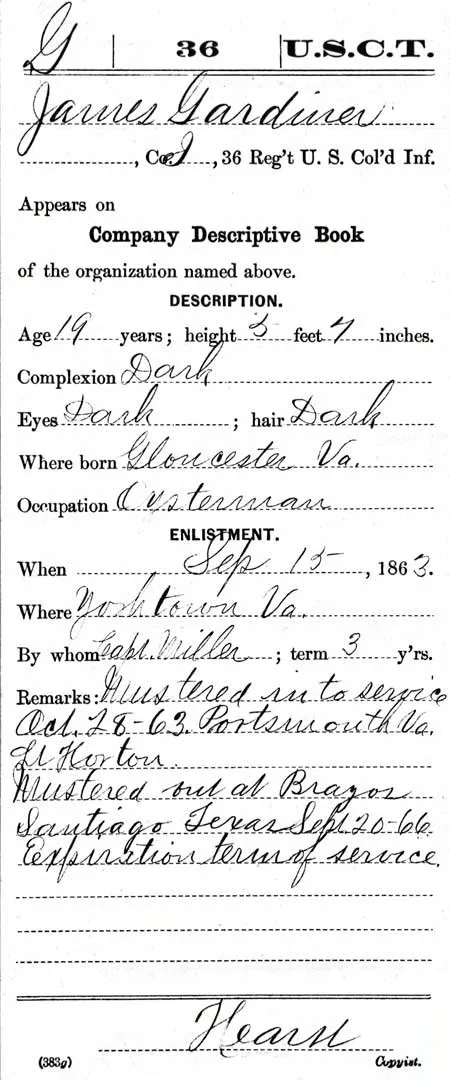 G | 36 | U.S.C.T.
James Gardiner
, Co. I, 36 Reg't U. S. Col'd Inf.
Appears on
Company Descriptive Book
of the organization named above.
DESCRIPTION.
Age 19 years; height 5 feet 7 inches.
Complexion Dark
Eyes Dark ; hair Dark
Where born Gloucester Va.
Occupation Oysterman
ENLISTMENT.
When Sep 15 , 1863.
Where Yorktown Va.
By whom Capt. Miller ; term 3 y'rs.
Remarks: Mustered in to service
Oct. 28-63. Portsmouth Va.
Lt Horton.
Mustered out at Brazos
Santiago Texas Sept 20-66.
Expiration term of service.
Hearst
(383g) Copyist.